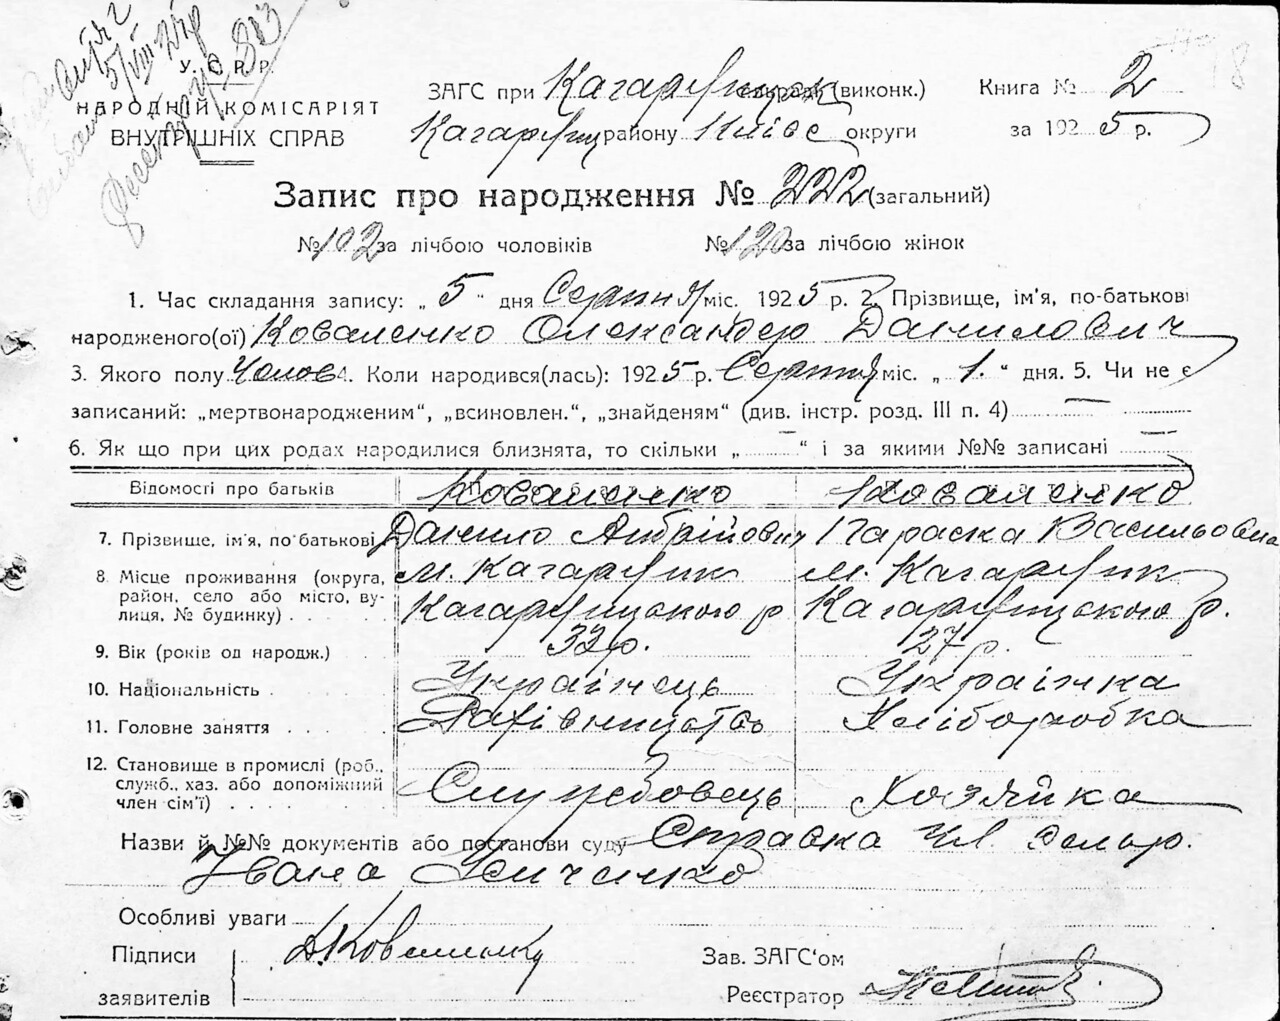 У. С. Р. Р.
НАРОДНІЙ КОМІСАРІЯТ
ВНУТРІШНІХ СПРАВ
5/VIII
ЗАГС при Кагарлицьк (виконк.)
Кагарлиц району Київс округи
Книга № 2
за 1925 р.
Запис про народження № 222 (загальний)
№ 102 за лічбою чоловіків № 120 за лічбою жінок
1. Час складання запису: „5“ дня Серпня міс. 1925 р. 2. Прізвище, ім'я, по-батькові
народженого(ої) Коваленко Олександер Данилович
3. Якого полу Чолов 4. Коли народився(лась): 1925 р. Серпня міс. „1.“ дня. 5. Чи не є
записаний: „мертвонародженим“, „всиновлен.“, „знайденям“ (див. інстр. розд. III п. 4) —
6. Як що при цих родах народилися близнята, то скільки „ — “ і за якими №№ записані —
Відомості про батьків Коваленко Коваленко
7. Прізвище, ім'я, по-батькові Данило Андрійович Параска Васильовна
8. Місце проживання (округа, м. Кагарлик м. Кагарлик
район, село або місто, ву- Кагарлицького р Кагарлицького р.
лиця, № будинку)
9. Вік (років од народж.) 33 р. 27 р.
10. Національність Українець Українка
11. Головне заняття Рахівництво Хліборобка
12. Становище в промислі (роб.,
служб., хаз. або допоміжний Службовець Хозяйка
член сім'ї)
Назви й №№ документів або постанови суду Справка
Івана
Особливі уваги
Підписи Д. Коваленко Зав. ЗАГС'ом
заявителів Реєстратор